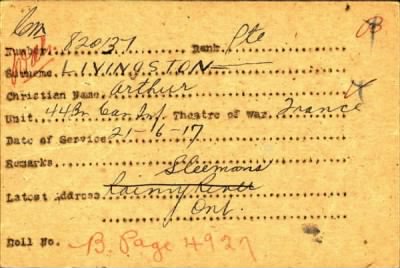 Cm
Number 820137 Rank Pte
Surname LIVINGSTON
Christian Name Arthur
Unit 44Bn Can Inf Theatre of War France
Date of Service 21-6-17
Remarks
Sleemans
Latest Address Rainy River
Ont.
Roll No. B. Page 4927